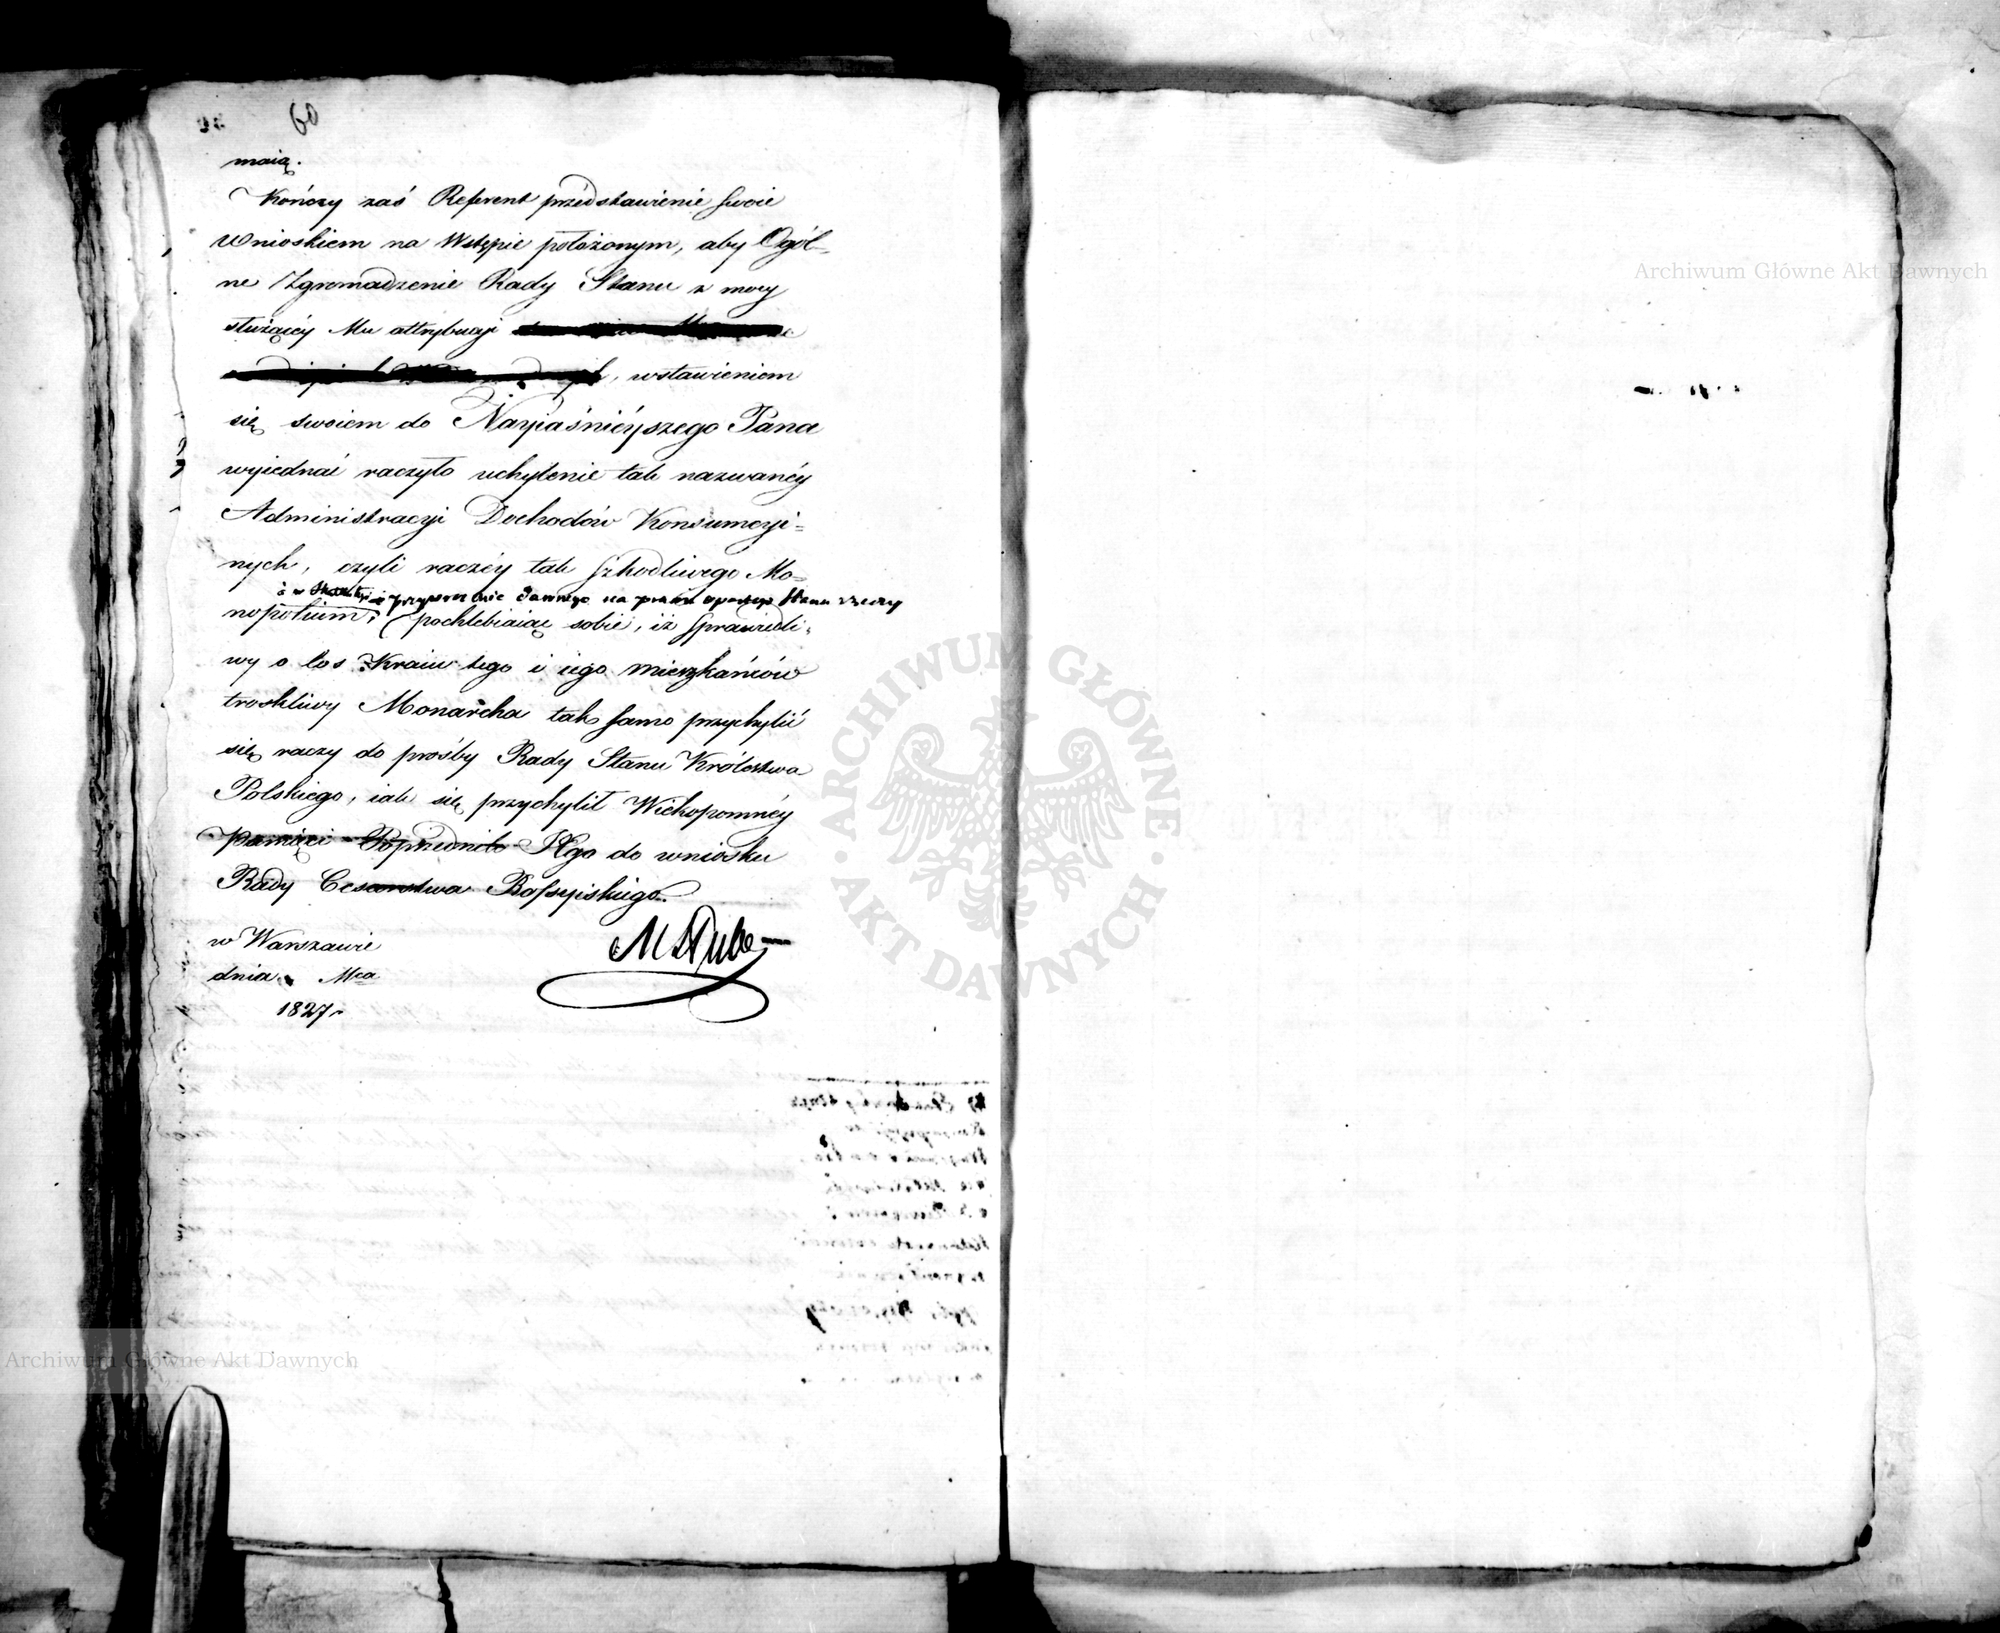 60
maią.
Kończy zaś Referent przedstawienie swoie
wnioskiem na Wstępie położonym, aby Ogól-
ne Zgromadzenie Rady Stanu z mocy
służącéy Mu attrybucyi
, wstawieniem
się swoiem do Nayiaśnieyszego Pana
wyiednać raczyło uchylenie tak nazwanéy
Administracyi Dochodów Konsumcyi=
nych, czyli raczéy tak szkodliwego Mo=
i przywrócenie dawnego na prawie opartego stanu rzeczy
nopolium, pochlebiaiąc sobie, iż sprawiedli-
wy o los Kraiu tego i iego mieszkańców
troskliwy Monarcha tak samo przychylić
się raczy do prośby Rady Stanu Królestwa
Polskiego, iak się przychylił Wiekopomnéy
Pamięci Poprzednik Jego do wniosku
Rady Cesarstwa Rossyiskiego.
w Warszawie
dnia Mca
1827 r
Archiwum Główne Akt Dawnych
ARCHIWUM GŁÓWNE AKT DAWNYCH
Archiwum Główne Akt Dawnych